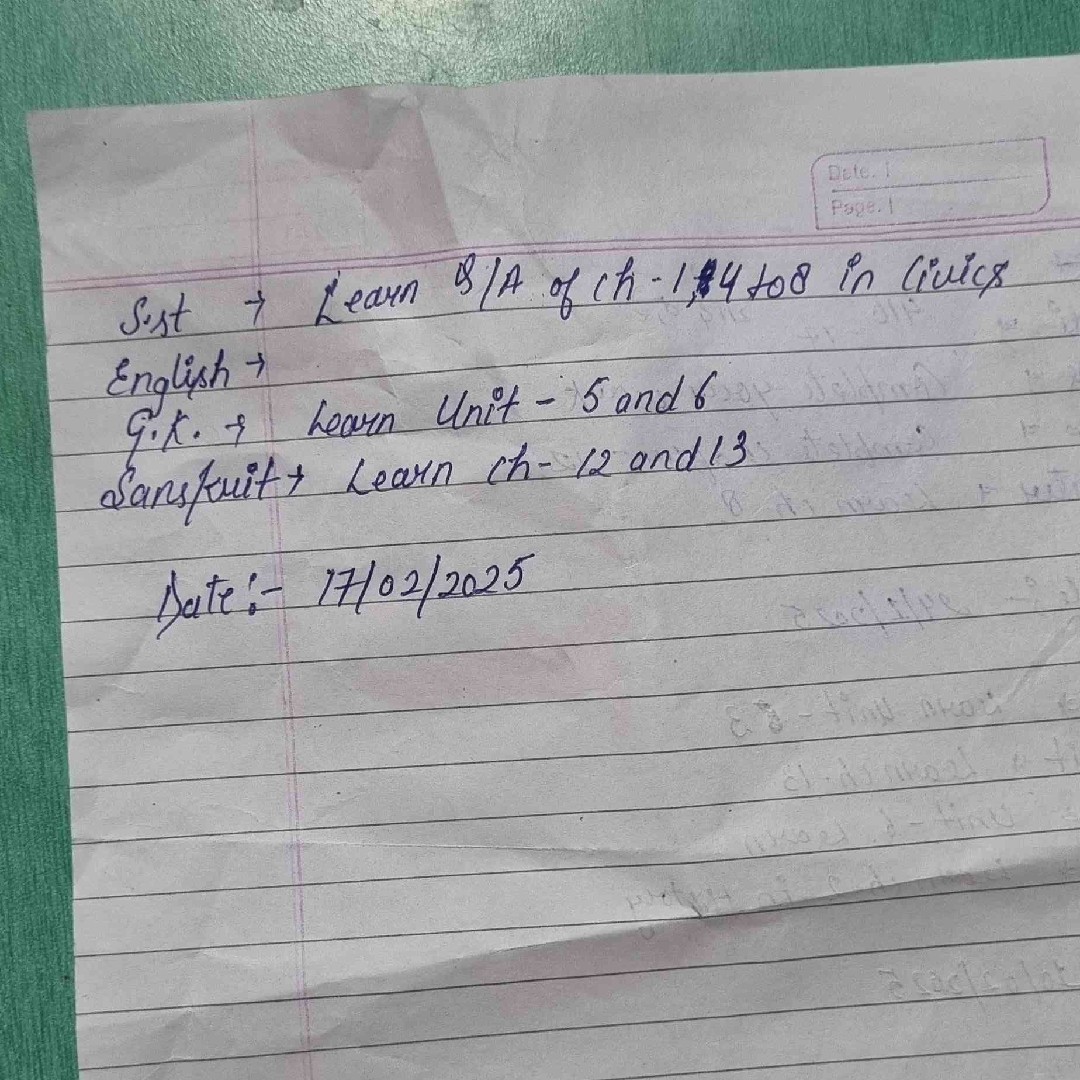 Date.
Page.
S.st → Learn Q/A of ch-1,4 to 8 in Civics
English →
G.K. → Learn Unit - 5 and 6
Sanskrit → Learn ch- 12 and 13
Date:- 17/02/2025